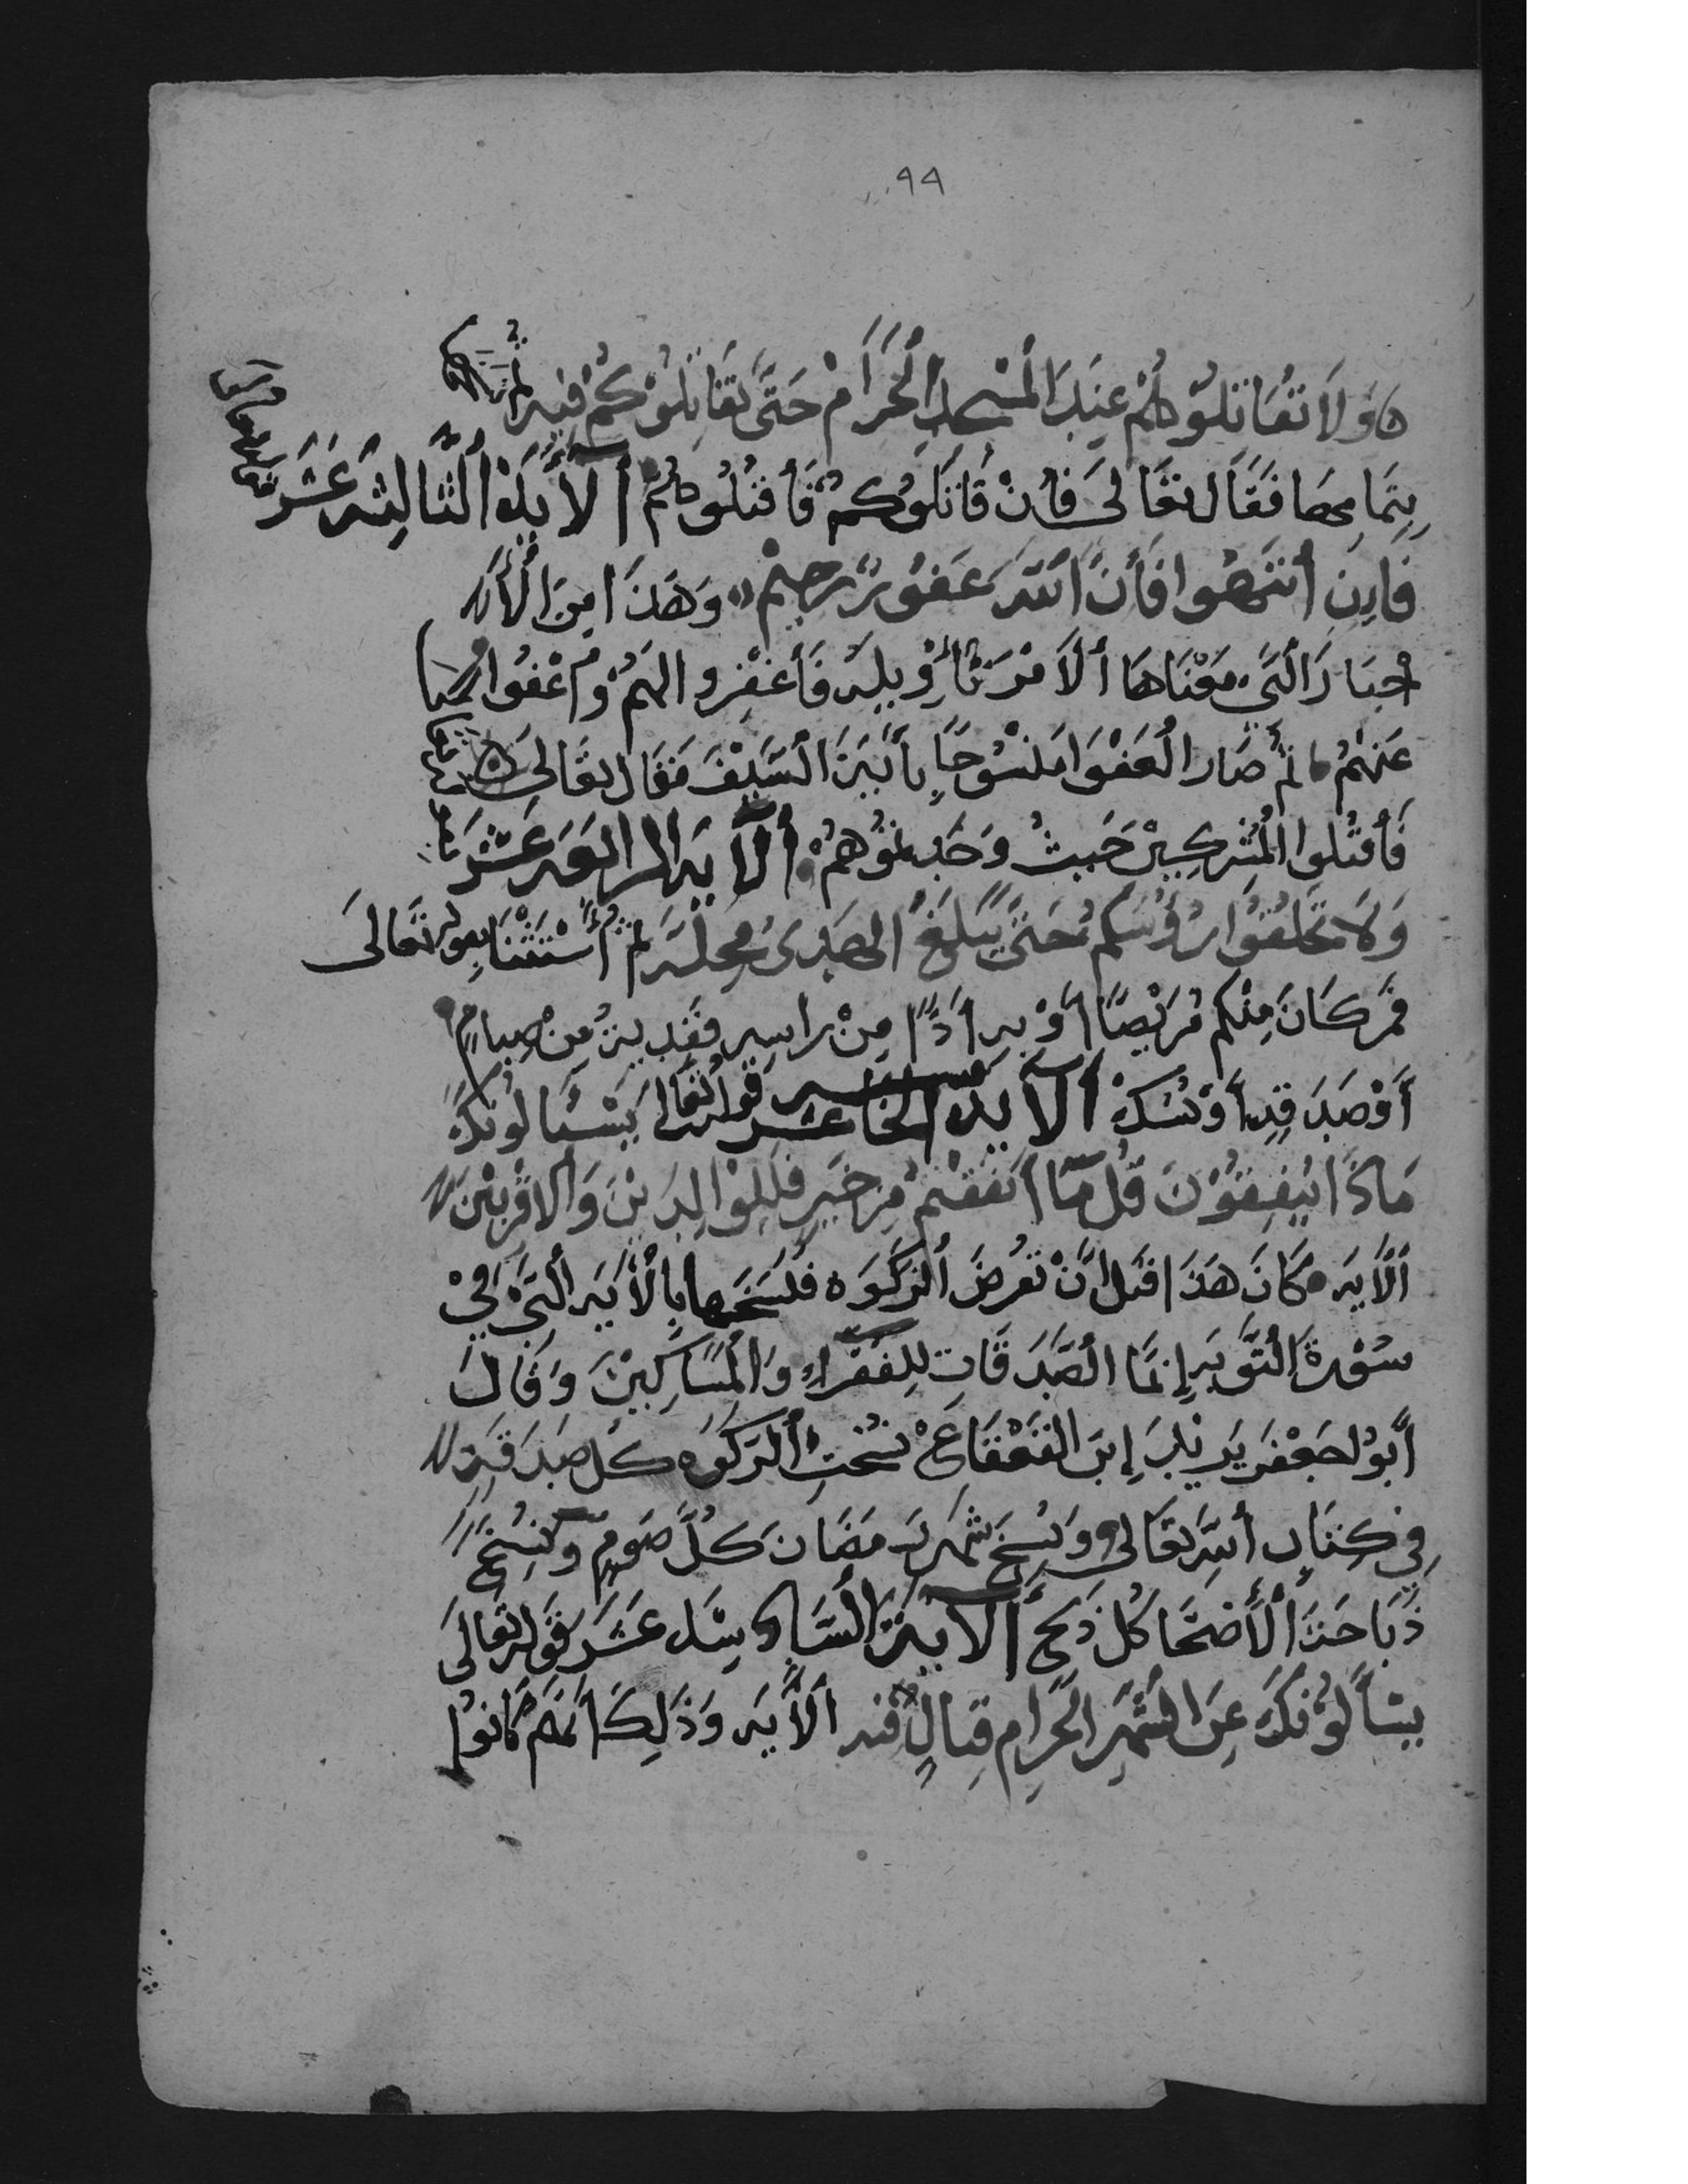 ٩٩
ولا تقاتلوهم عِند المسجد الحرام حتى يقاتلوكم فيه ثم
بتمامها فقال تعالى فإن قاتلوكم فأقتلوهم ألآية الثالثه عشر
قوله تعالى
فاءِن أنتهوا فأن الله غفور رحيم وهذا مِن الأ
خبار التي معناها ألأمر تأويله فأغفرو الهم وأعفوا
عنهم ثم صار العفوا منسوحا بأية السيف فقال تعالى
فأقتلوا المشركين حيث وجدتموهم ألآيه الرابعه عشر
ولا تحلقوا رؤسكم حتى يبلغ الهدى محله ثم أستثنا بقوله تعالى
فمن كان منكم مريضا أو به أذا من راسه ففدية من صيام
أو صدقة أو نسك ألآية الخامسه عشر قوله تعالى يسئالونك
ماذا ينفقون قل ما أنفقتم من خير فللوالدين والاقربين
ألآيه وكان هذا قبل أن تفرض الزكوه فنسخها بالأيه التي في
سورة التوبه إنما الصدقات للفقراء والمساكين وقال
أبو اجعفر يزيد إبن القعقاع نسخت ألزكوه كل صدقه
في كتاب أللّه تعالى ونسخ شهر رمضان كل صوم ونسخ
ذباحة ألأضحا كل ذبح ألآية السادسه عشر قوله تعالى
يسألونك عن الشهر الحرام قتال فيه ألآيه وذلك أنهم كانوا